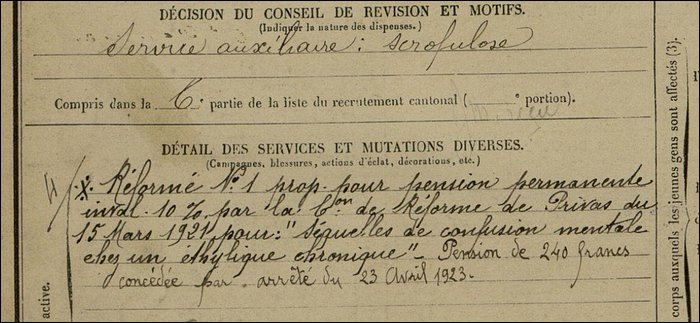 DÉCISION DU CONSEIL DE REVISION ET MOTIFS.
(Indiquer la nature des dispenses.)
Service auxiliaire : scrofulose
Compris dans la 6e partie de la liste du recrutement cantonal ( e portion).
DÉTAIL DES SERVICES ET MUTATIONS DIVERSES.
(Campagnes, blessures, actions d'éclat, décorations, etc.)
Réformé N° 1 prop. pour pension permanente
inval. 10 % par la Con de Réforme de Privas du
15 Mars 1921 pour : "Séquelles de confusion mentale
chez un éthylique chronique" - Pension de 240 francs
concédée par arrêté du 23 Avril 1923.
active.
corps auxquels les jeunes gens sont affectés (3).